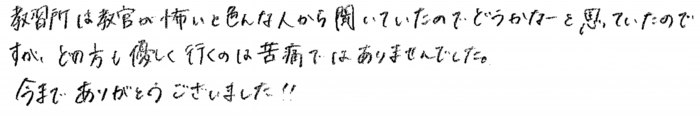 教習所は教官が怖いと色んな人から聞いていたのでどうかなーと思っていたので
すが、どの方も優しく行くのは苦痛ではありませんでした。
今までありがとうございました!!